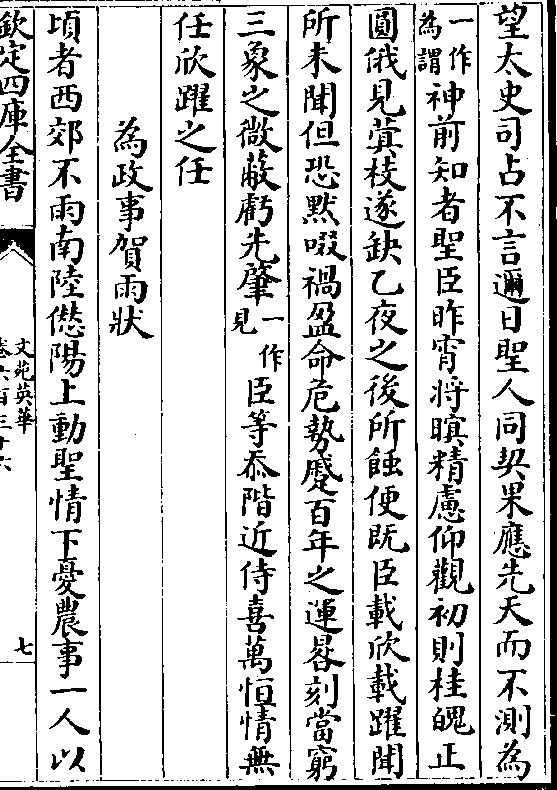 望太史司占不言邇日聖人同契果應先天而不測為
一作為謂神前知者聖臣昨宵將暝精慮仰觀初則桂魄正
圓俄見蓂枝遂缺乙夜之後所蝕便既臣載欣載躍聞
所未聞但恐默啜禍盈命危勢蹙百年之運晷刻當窮
三象之微蔽虧先肇一作見臣等忝階近侍喜萬恒情無
任欣躍之任
為政事賀雨狀
頃者西郊不雨南陸愆陽上動聖情下憂農事一人以
欽定四庫全書
文苑英華
卷六百三十六
七